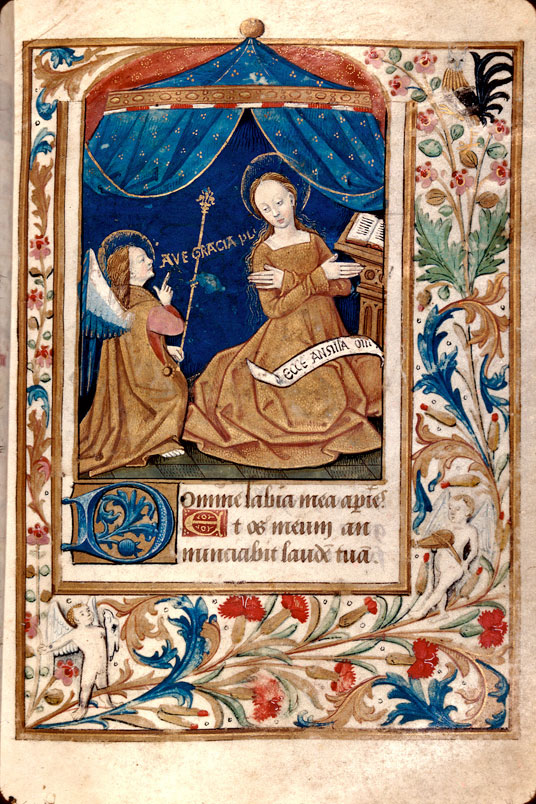 AVE GRACIA PL
ECCE ANSILLA DNI
Domine labia mea apies
Et os meum an
nunciabit laudē tuā